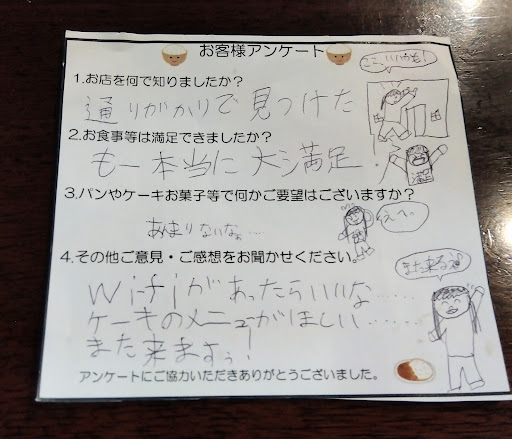 お客様アンケート
ここいいかも!
1.お店を何で知りましたか?
通りがかりで見つけた
2.お食事等は満足できましたか?
も一本当に大満足
満足
3.パンやケーキお菓子等で何かご要望はございますか?
あんまりないなぁ……
4.その他ご意見・ご感想をお聞かせください。
また来る
Wi-fiがあったらいいな……
ケーキのメニューがほしい……
また来ますぅ!
アンケートにご協力いただきありがとうございました。